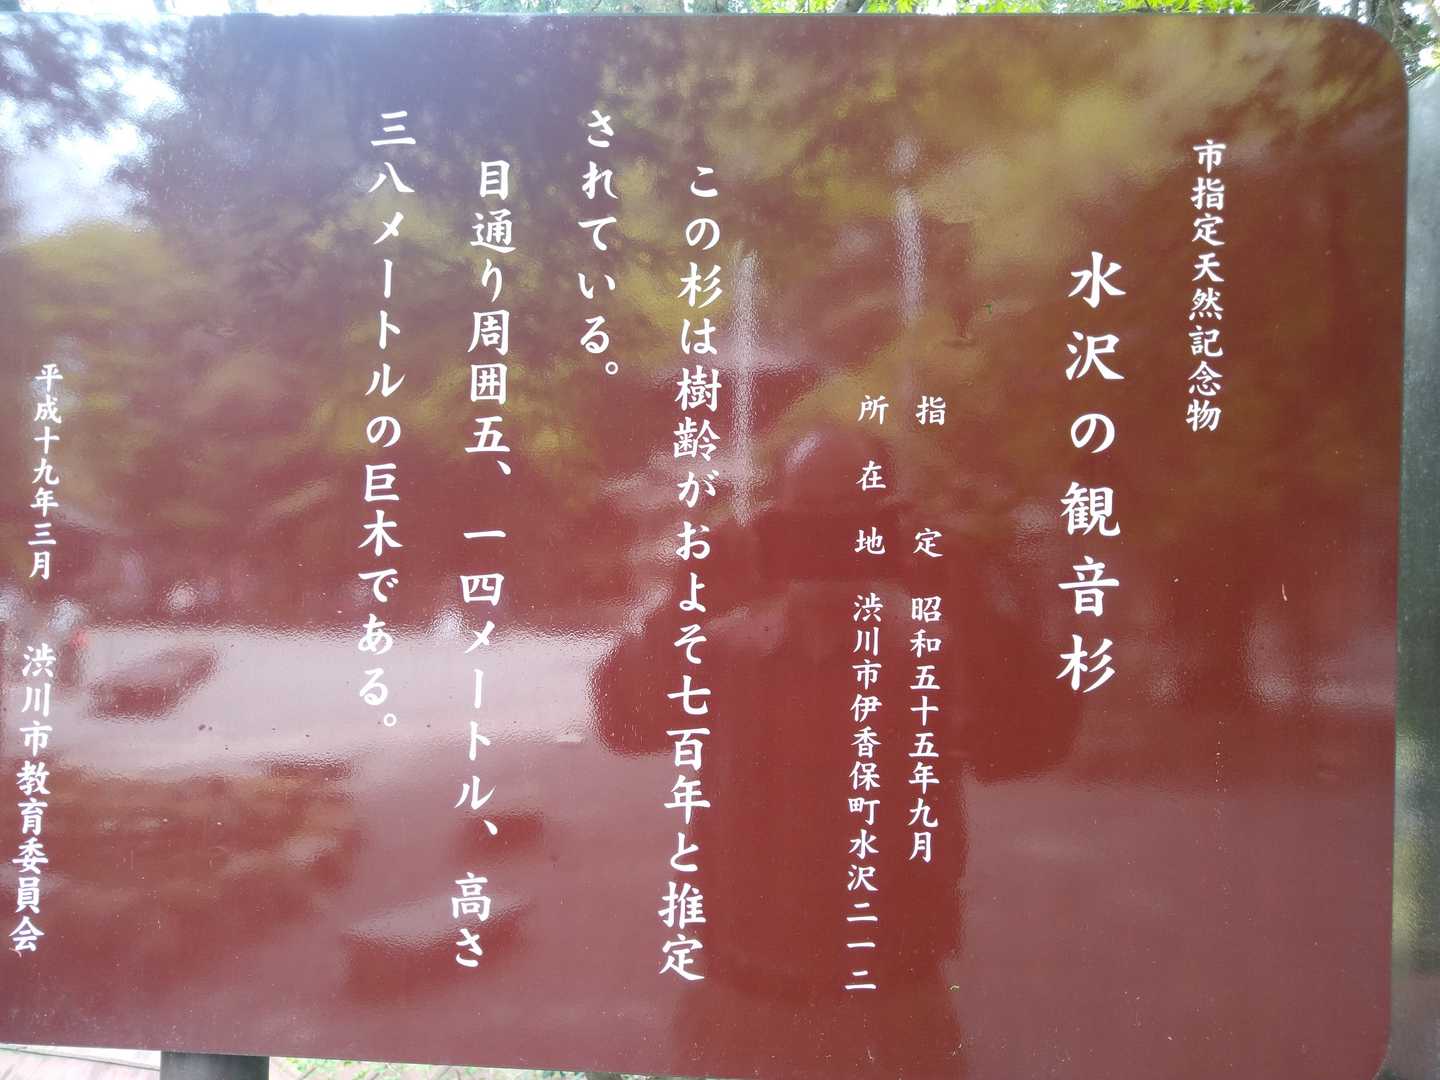 市指定天然記念物
水沢の観音杉
指定 昭和五十五年九月
所在地 渋川市伊香保町水沢二一二
この杉は樹齢がおよそ七百年と推定
されている。
目通り周囲五、一四メートル、高さ
三八メートルの巨木である。
平成十九年三月 渋川市教育委員会